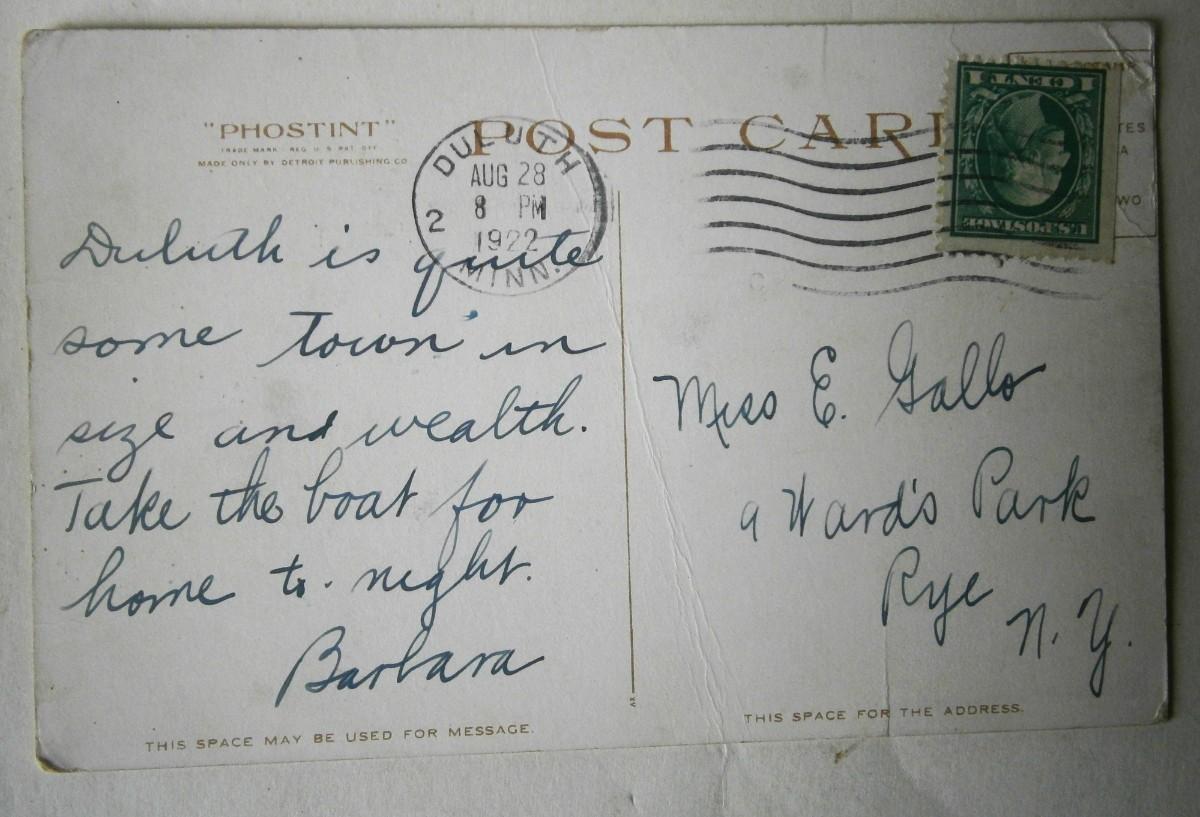 "PHOSTINT"
TRADE MARK REG U S PAT OFF
MADE ONLY BY DETROIT PUBLISHING CO
POST CAR
DULUTH
AUG 28
8 PM
2
1922
MINN.
1 CENT 1
U.S.POSTAGE
TES
A
WO
Duluth is quite
some town in
size and wealth.
Take the boat for
home to-night.
Barbara
THIS SPACE MAY BE USED FOR MESSAGE.
Miss E. Gallo
9 Ward's Park
Rye
N. Y.
THIS SPACE FOR THE ADDRESS.